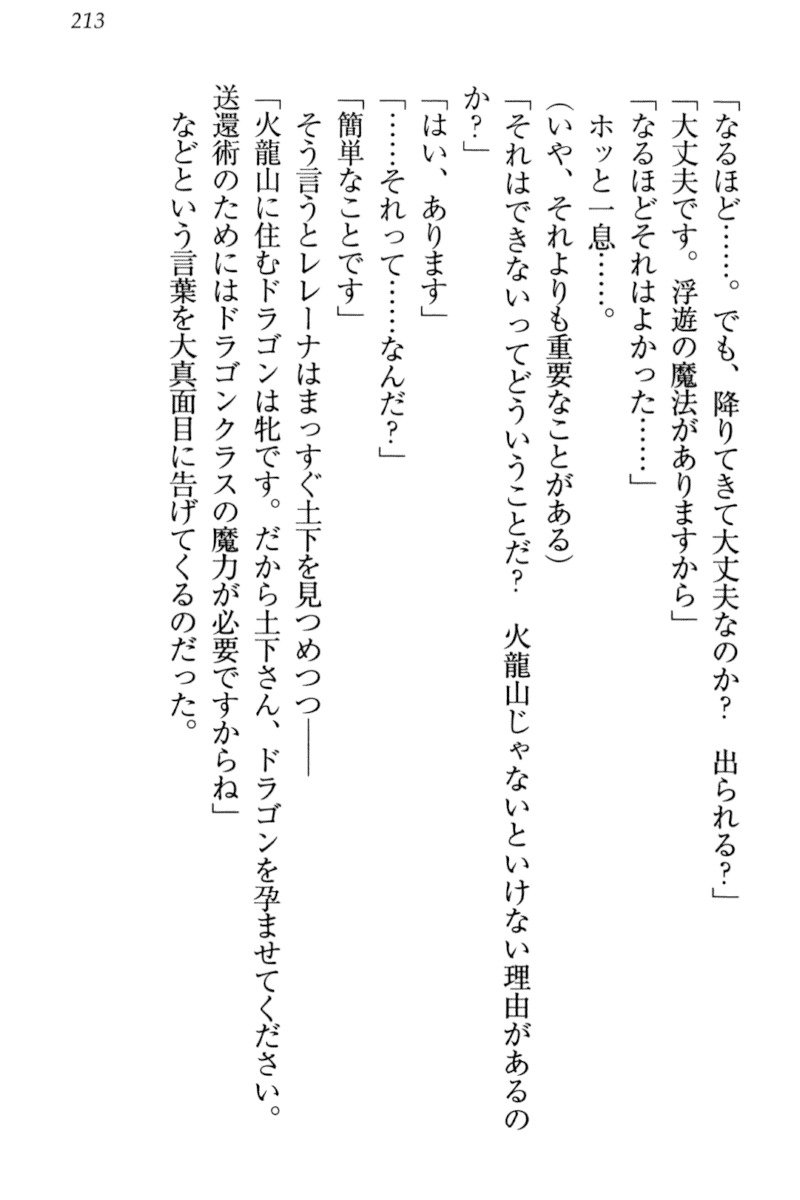 213
「なるほど……。でも、降りてきて大丈夫なのか?　出られる?」
「大丈夫です。浮遊の魔法がありますから」
「なるほどそれはよかった……」
　ホッと一息……。
(いや、それよりも重要なことがある)
「それはできないってどういうことだ?　火龍山じゃないといけない理由があるの
か?」
「はい、あります」
「……それって……なんだ?」
「簡単なことです」
　そう言うとレレーナはまっすぐ土下を見つめつつ――
「火龍山に住むドラゴンは牝です。だから土下さん、ドラゴンを孕ませてください。
送還術のためにはドラゴンクラスの魔力が必要ですからね」
　などという言葉を大真面目に告げてくるのだった。